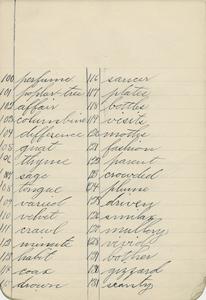 100 perfume
101 poplar-tree
102 affair
103 columbine
104 difference
105 gnat
106 thyme
107 sage
108 tongue
109 varied
110 velvet
111 crawl
112 minute
113 habit
114 coax
115 drown
116 saucer
117 plates
118 bottles
119 visits
120 moths
121 fashion
122 parent
123 crowded
124 plume
125 driven
126 smilax
127 mulberry
128 vivid
129 bother
130 gizzard
131 scanty